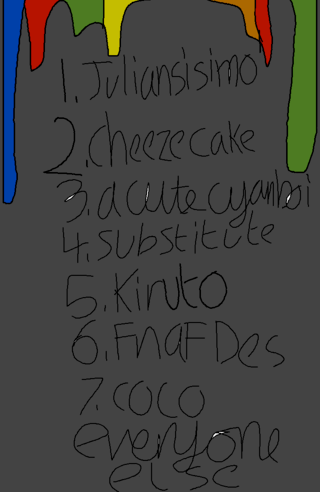 1. Juliansisimo
2. cheezecake
3. acutecyanboi
4. substitute
5. Kiruto
6. FnaF Des
7. coco
everyone
else